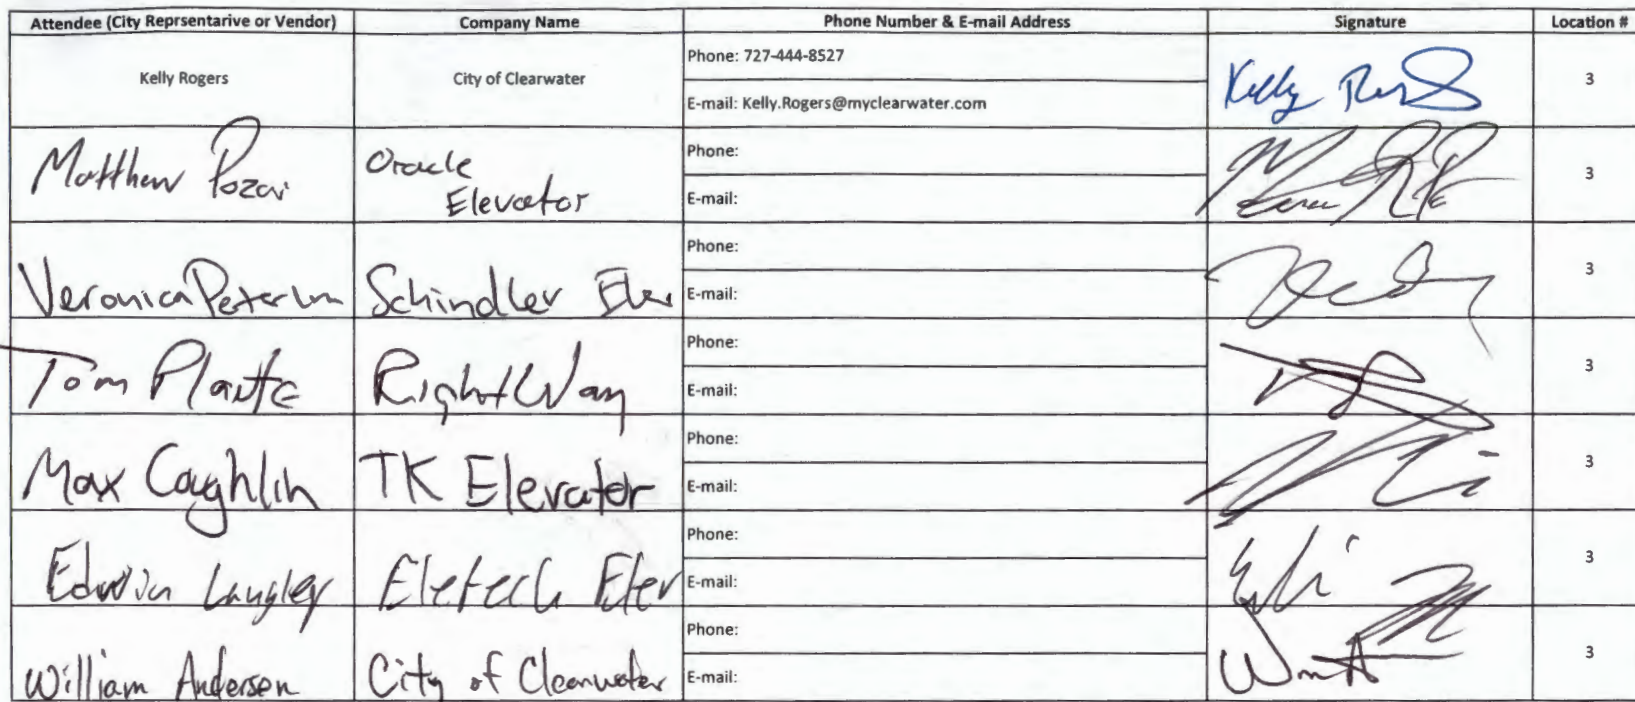 Attendee (City Reprsentarive or Vendor) Company Name Phone Number & E-mail Address Signature Location #
Kelly Rogers City of Clearwater Phone: 727-444-8527 Kelly 3
E-mail: Kelly.Rogers@myclearwater.com
Matthew Pozar Oracle Elevator Phone: 3
E-mail:
Veronica Schindler Elev Phone: 3
E-mail:
Tom Plante RightWay Phone: 3
E-mail:
Max Coughlin TK Elevator Phone: 3
E-mail:
Edwin Langley Eletech Elev Phone: 3
E-mail:
William Anderson City of Clearwater Phone: 3
E-mail: